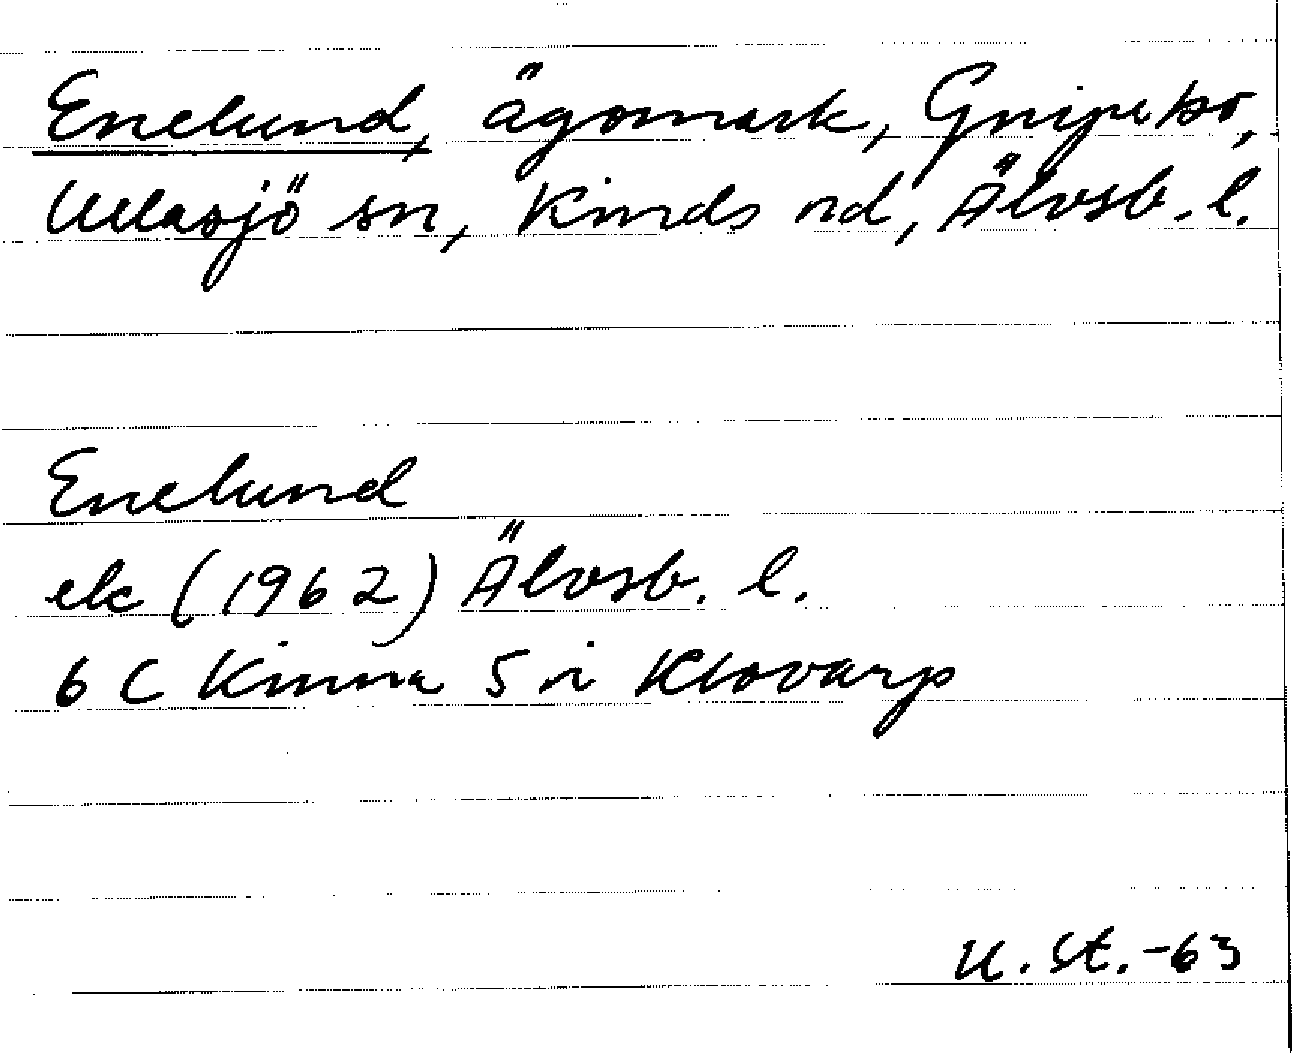 Enelund, ägomark, Gnipebo,
Ullasjö sn, Kinds hd, Älvsb. l.
Enelund
ek (1962) Älvsb. l.
6 C Kinna S n Klovarp
U. St. -63